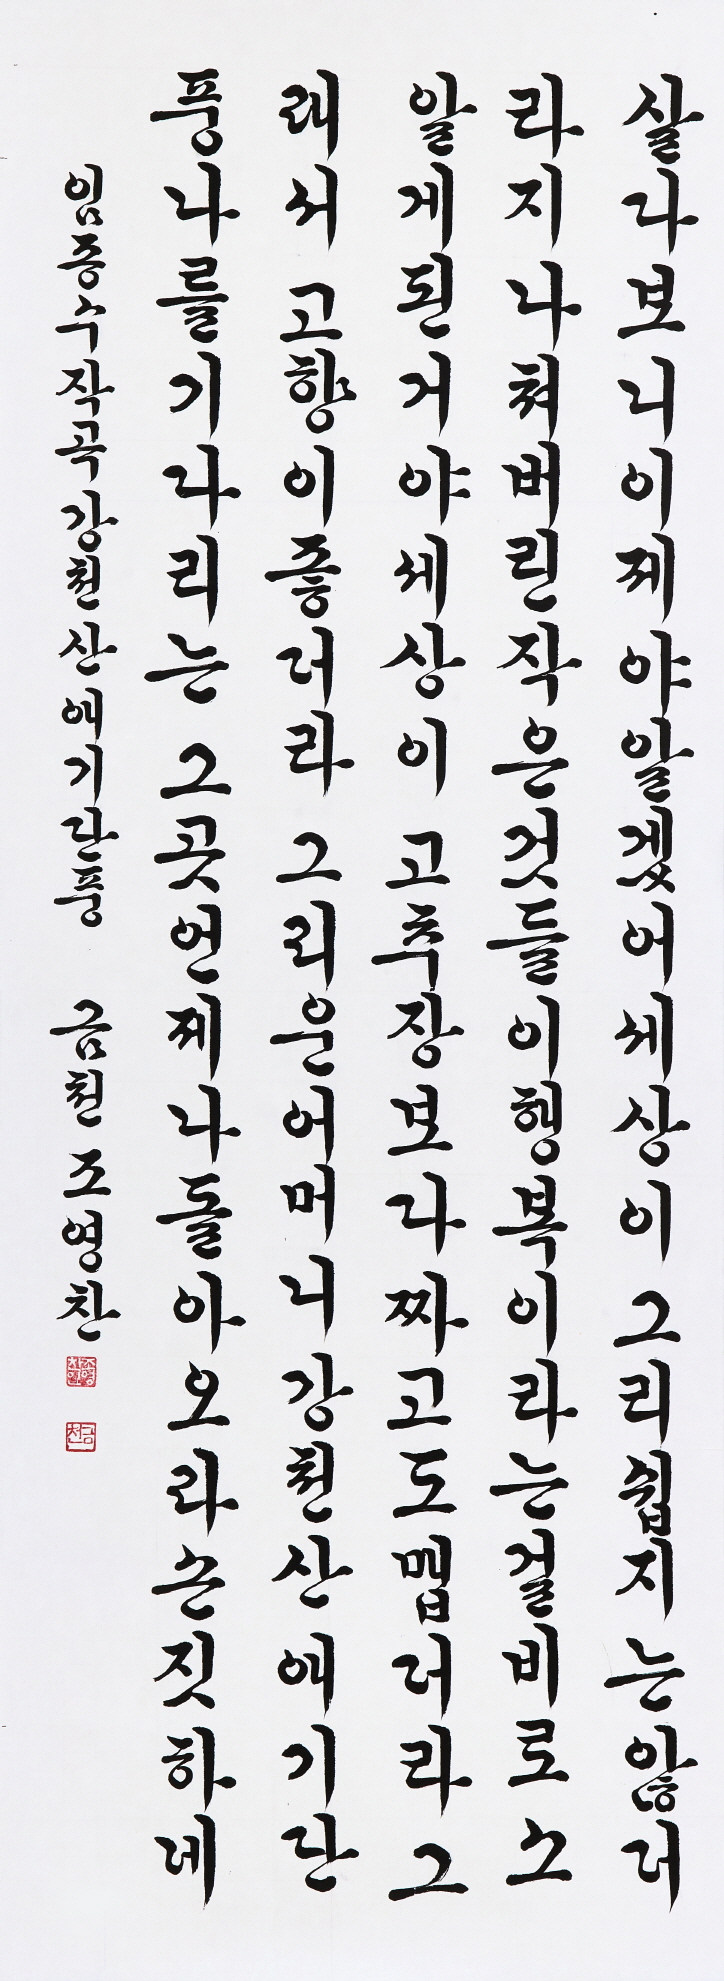 살다보니이제야알겠어세상이그리쉽지는않더
라지나쳐버린작은것들이행복이라는걸비로소
알게된거야세상이고추장보다짜고도맵더라그
래서고향이좋더라그리운어머니강천산애기단
풍나를기다리는그곳언제나돌아오라손짓하네
임종수작곡강천산애기단풍 금천조영찬